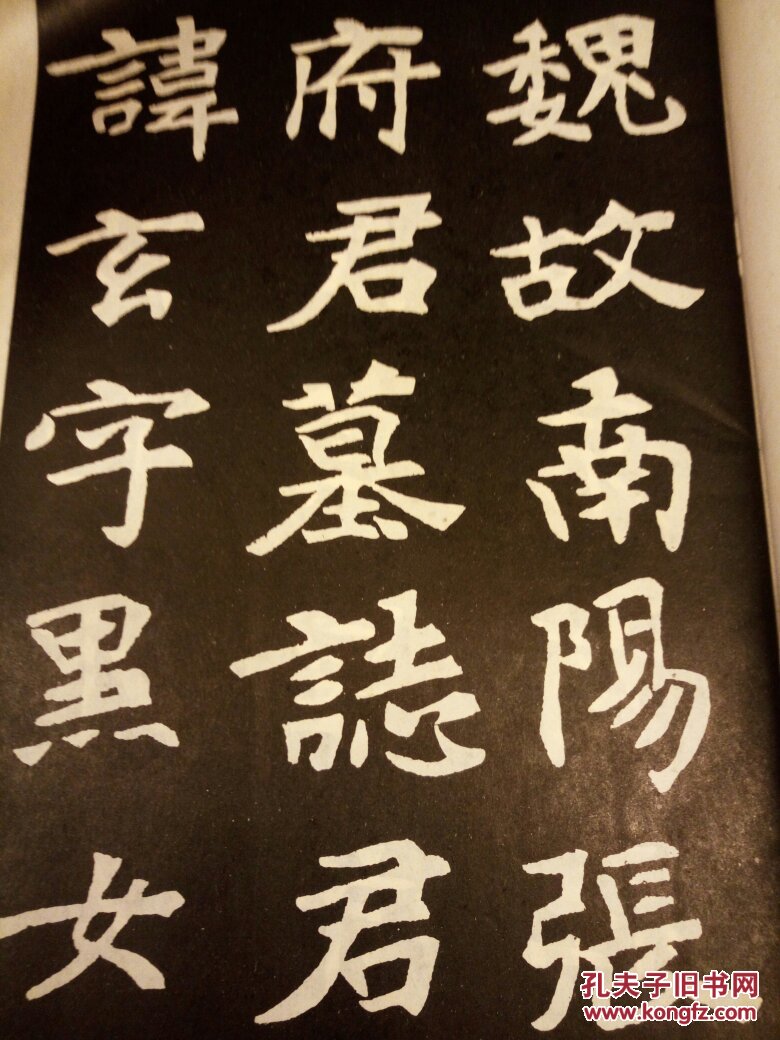 魏故南陽張
府君墓誌君
諱玄字黑女
孔夫子旧书网
www.kongfz.com